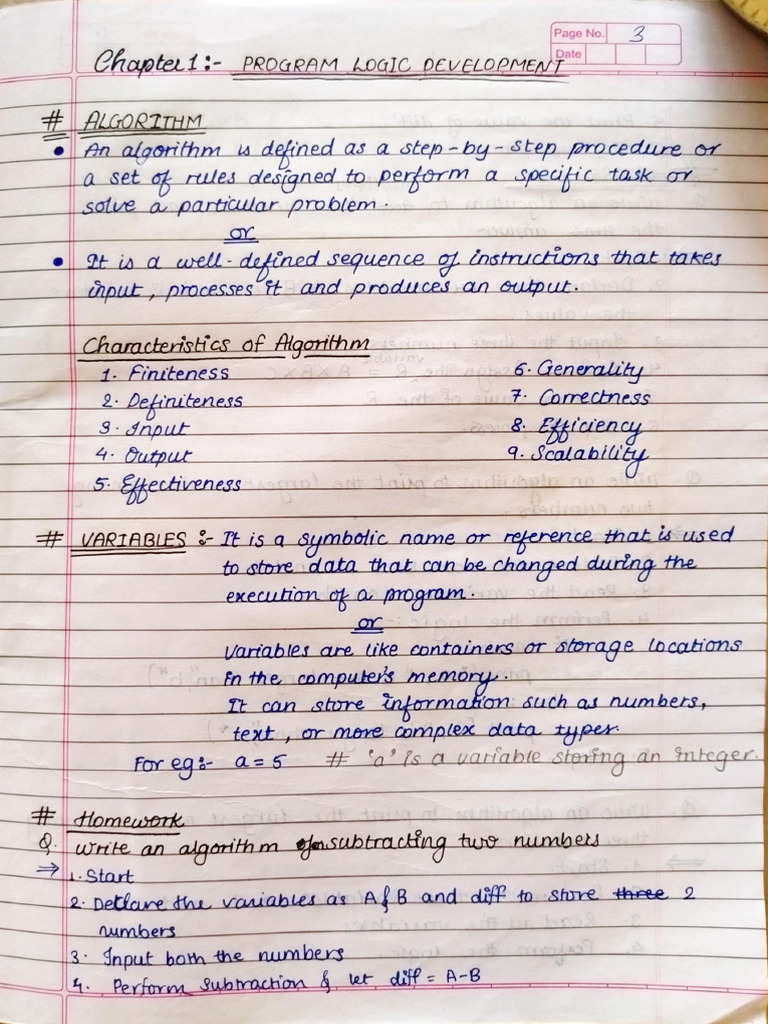 Page No. 3
Date
Chapter 1:- PROGRAM LOGIC DEVELOPMENT
# ALGORITHM
• An algorithm is defined as a step-by-step procedure or
a set of rules designed to perform a specific task or
solve a particular problem.
or
• It is a well-defined sequence of instructions that takes
input, processes it and produces an output.
Characteristics of Algorithm
1. Finiteness
2. Definiteness
3. Input
4. Output
5. Effectiveness
6. Generality
7. Correctness
8. Efficiency
9. Scalability
# VARIABLES :- It is a symbolic name or reference that is used
to store data that can be changed during the
execution of a program.
or
Variables are like containers or storage locations
in the computer's memory.
It can store information such as numbers,
text, or more complex data types.
For eg:- a = 5 # 'a' is a variable storing an integer.
# Homework
Q. Write an algorithm for subtracting two numbers
⇒ 1. Start
2. Declare the variables as A & B and diff to store three 2
numbers
3. Input both the numbers
4. Perform Subtraction & let diff = A-B